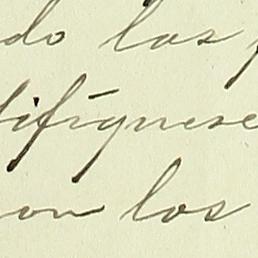 do los
tifíquese
on los